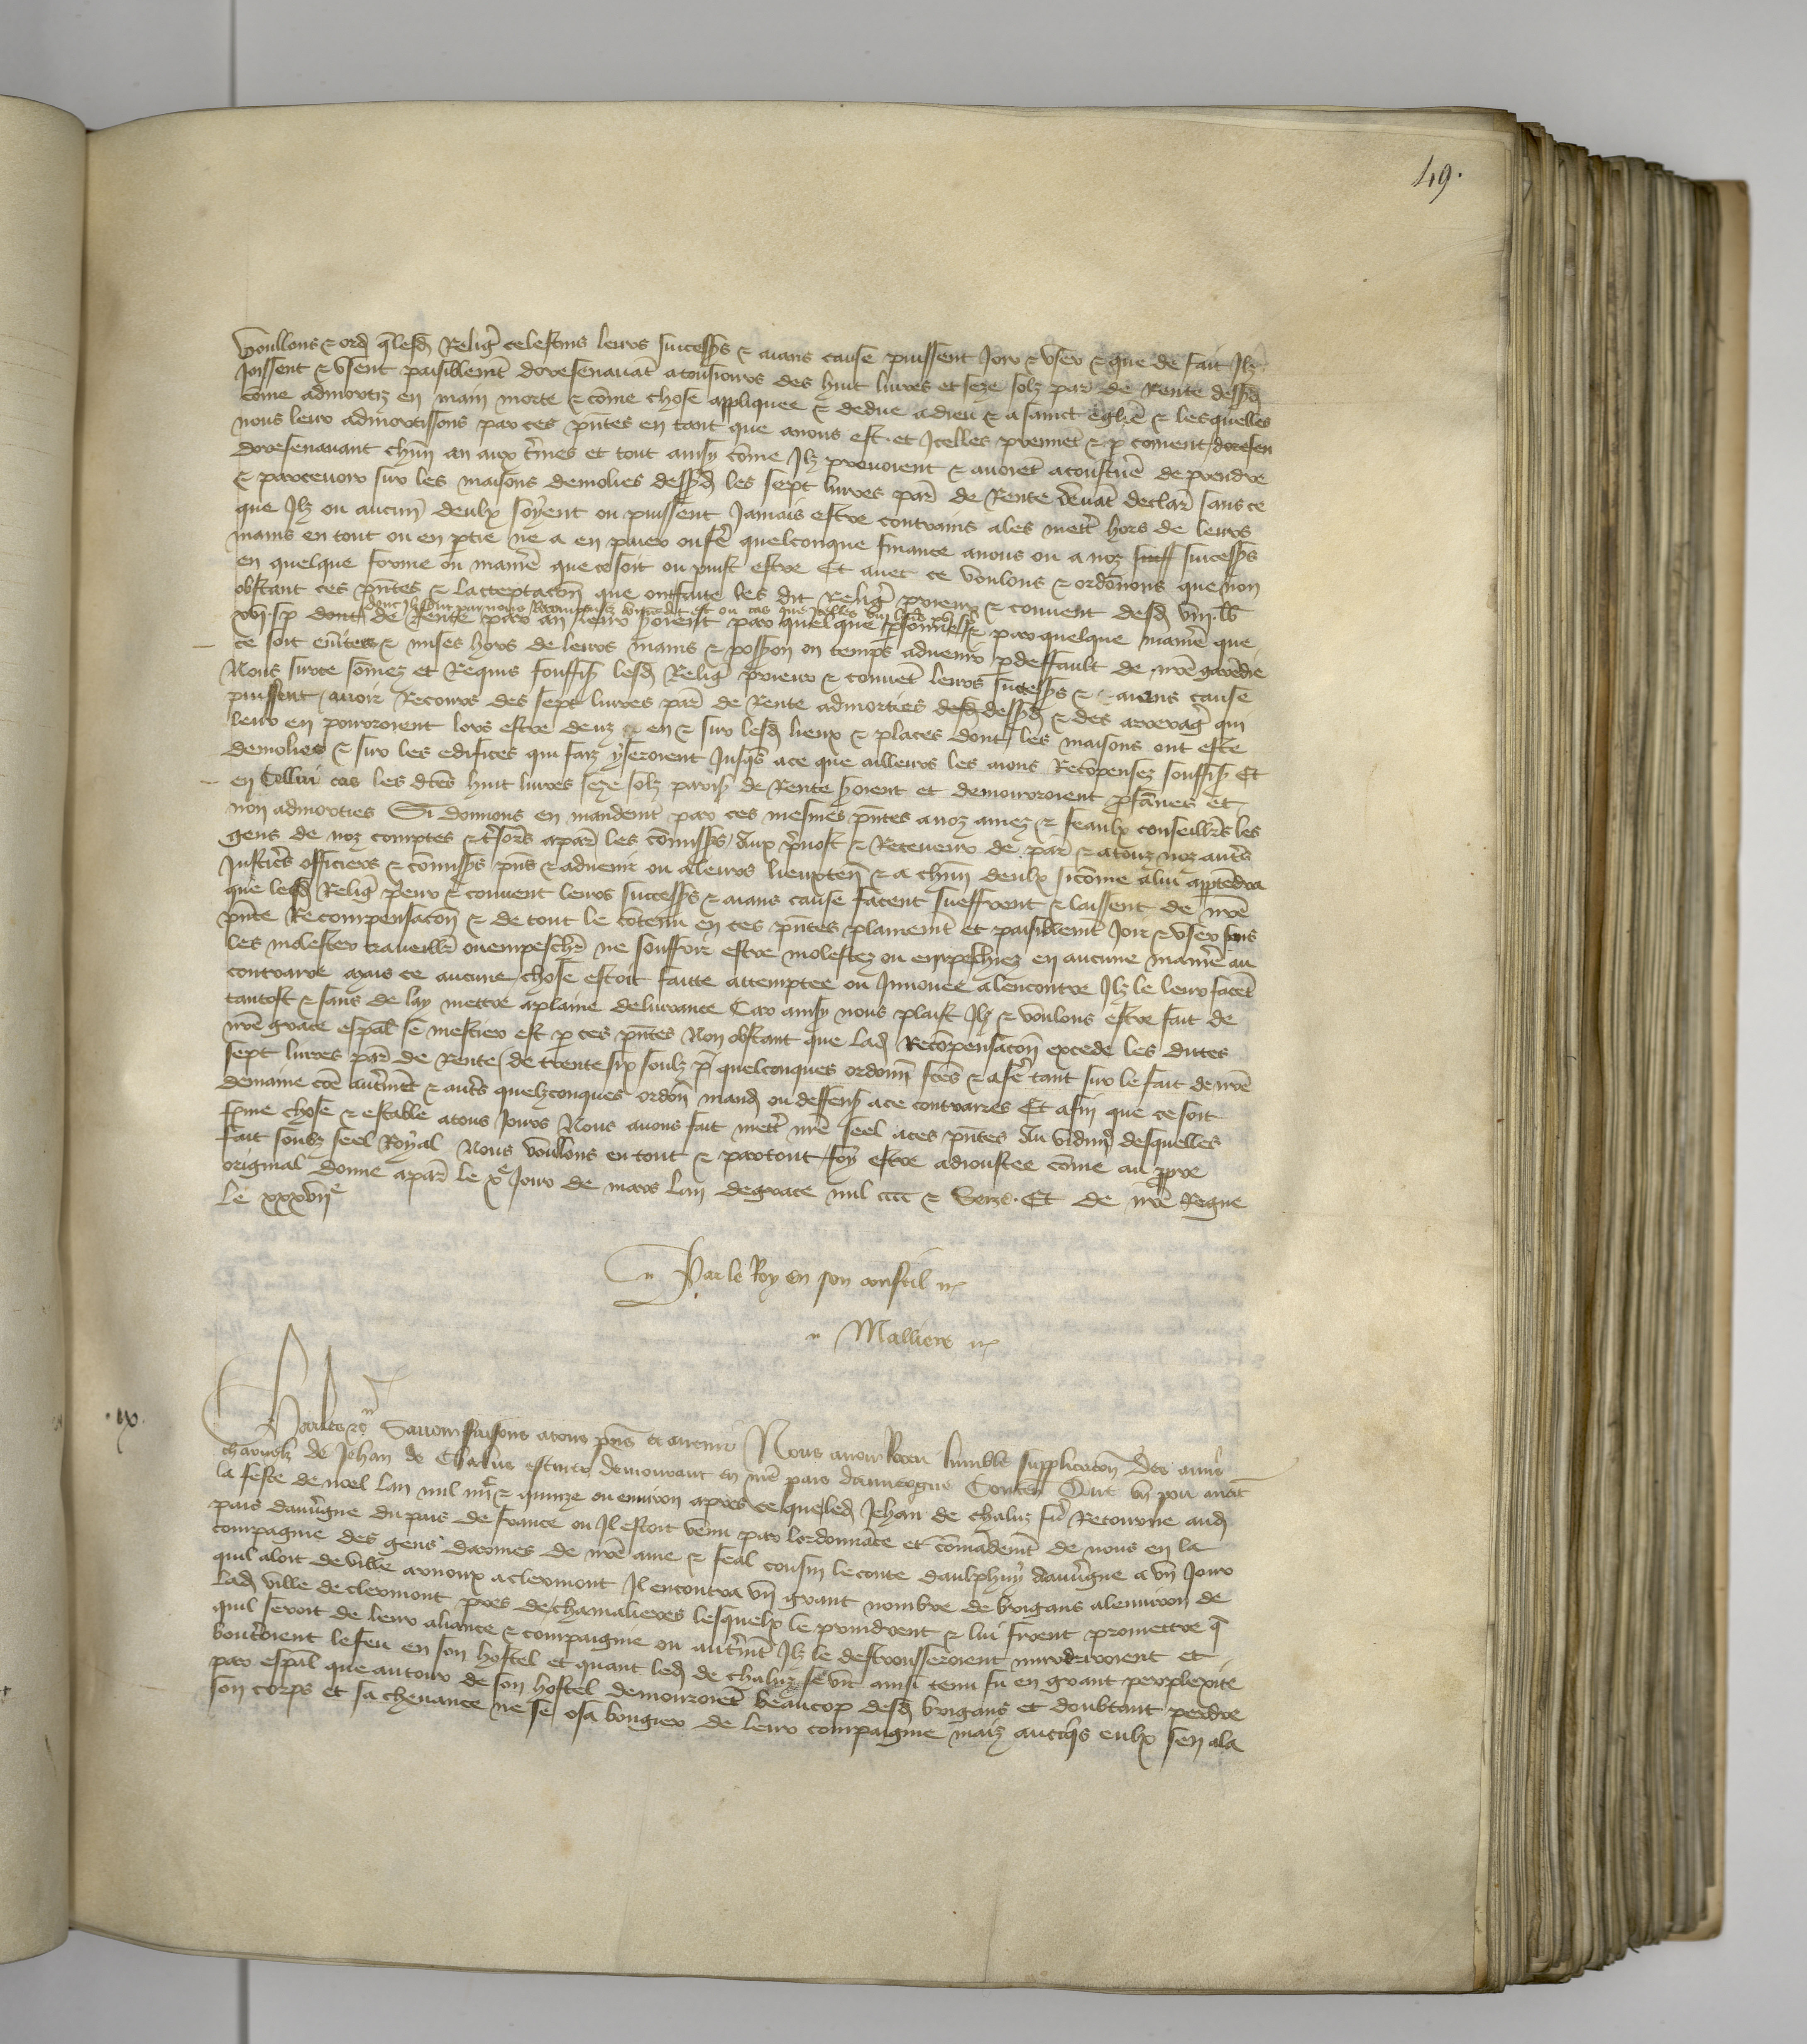 49.
Voullons & ord̄ q̄ lesd̄ Reliḡ celestins leurs successs̄ & aians cause puissent Joir & user & que de fait Ilz
Joissent & usent paisiblem̄t doresenavāt a tousiours des huit livres et seze solz par̄ de Rente dessusd̄
cōme admortiz en main morte & cōme chose appliquee & dediee a dieu & a saincte eglise & lesquelles
nous leur admortissons par ces p̄ntes en tant que a nous est. et Icelles prennēt & p̄coivent doresen
doresenavant ch̄un an aux t̄mes et tout ainsy cōme Ilz prenoient & avoiēt acoustumē de prendre
& parcevoir sur les maisons demolies dessusd̄ les sept livres par̄ de Rente devāt declar̄ sans ce
que Ilz ou aucun deulx soyent ou puissent Jamais estre contrains a les mett̄ hors de leurs
mains en tout ou en p̄tie ne a en paier ou fē quelconque finance a nous ou a noz succ successs̄
en quelque forme ou manier̄e que ce soit ou puist estre Et avec ce voulons & ordōnons que non
obstant ces p̄ntes & lacceptacōn que ont faite les dit Reliḡ prieur & couvent desd̄ viii. lb̄
xvi s̄ p̄ dont de Rente par an leur soient par quelque p̄sonne & par quelque manier̄e que
ce soit & mises hors de leurs mains & poss̄on ou temps advenir p̄ deffault de nr̄e garēdie
Nous surce sōmez et Requis souffis̄ lesd̄ Reliḡ prieur & couvēt leurs successs̄ & aians cause
puissent avoir Recours des sept livres par̄ de Rente admorties desd̄ dessusd̄ & des arreraḡ qui
leur en pourroient lors estre deuz en & sur lesd̄ lieux & places dont les maisons ont este
demolies & sur les edifices qui faiz y seroient Jusq̄s a ce que ailleurs les aions Recōpensez souffis̄ Et
en Cellui cas les d̄tes huit livres seze solz paris̄ de Rente soient et demourroient p̄fānes et
non admorties Si donnons en mandem̄t par ces mesmes p̄ntes a noz amez & feaulx conseill̄rs les
gens de noz comptes & tres̄ors̄ a par̄ les cōmiss̄s Aux p̄vost & Receveur de par̄ & a touz noz aut̄s
Justiciers officiers & cōmiss̄s p̄ns & advenir ou a leurs lieuxten̄ & a ch̄un deulx sicōme a lui app̄tēdra
que lesd̄ Reliḡ p̄eur & couvent leurs successs̄ & aians cause facent sueffrent & laissent de nr̄e
p̄nte Recompensacōn & de tout le cōtenu en ces p̄ntes plainem̄t et paisiblem̄t Joir & user sans
les molester travaillē ou empeschē ne souffrir estre molestez ou empeschiez en aucune manier̄e au
contraire mais ce aucune chose estoit faitte attemptee ou Innovee a lencontre Ilz le leur facēt
tantost & sans delay mettre a plaine delivrance Car ainsy nous plaist Il & voulons estre fait de
nr̄e grace esp̄al se mestier est p̄ ces p̄ntes Non obstant que lad̄ Recōpensacōn excede les dittes
sept livres par̄ de Rente de trente six soulz p̄ quelconques ordonn̄ fc̄es & a fē tant sur le fait de nr̄e
demaine cōe aut̄m̄ēt & aut̄s quelzconques ordōn̄ mand̄ ou deffens̄ a ce contraires Et afin que ce soit
f̄me chose & estable a tous Jours Nous avons fait mett̄ nr̄e seel a ces p̄ntes Au vidim̄9 desquelles
fait soubz seel Royal Nous voullons en tout & partout foy estre adioustee cōme au p̄pre
original Donne a par̄ le xe Jour de mars lan de grace mil cccc & Seize. Et de nr̄e Regne
le xxxviie
Par le Roy en son conseil
Malliere
.ix.
Charles &c̄ Savoir faisons a tous p̄ns et avenir Nous avoir Receu lumble supplicacōn des amis
charnelz de Jehan de Chalus escuier demourant en nr̄e pais dauvergne Conten̄ Que un pou avāt
la feste de noel lan mil iiiic & quinze ou environ apres ce que led̄ Jehan de chaluz fu Retourne aud̄
pais dauv̄gne du pais de France ou Il estoit venu par lordonnāce et cōmādem̄t de nous en la
compagnie des gens darmes de nr̄e ame & feal cousin le conte daulphin dauv̄gne a un Jour
quil aloit de ville arnoux a clermont Il encontra un grant nombre de brigans alenviron de
lad̄ ville de clermont pres de chamalieres lesquelx le prindrent & lui firent promettre q̄
quil seroit de leur aliance & compaignie ou aut̄m̄t Ilz le destrousseroient murdriroient et
bout̄oient le feu en son hostel et quant led̄ de chaluz se vit ainsi tenu fu en grant perplexite
par esp̄al que autour de son hostel demouroiēt beaucop desd̄ brigans et doubtant perdre
son corps et sa chevance ne se osa bougier de leur compaignie maiz avecq̄s eulx sen ala